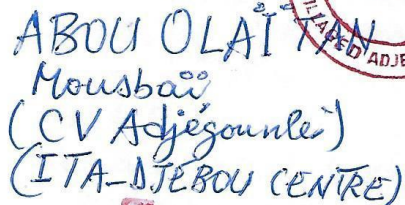 ABOU OLAÏTAN
Mousbaï
(CV Adjégounlè)
(ITA-DJÈBOU CENTRE)